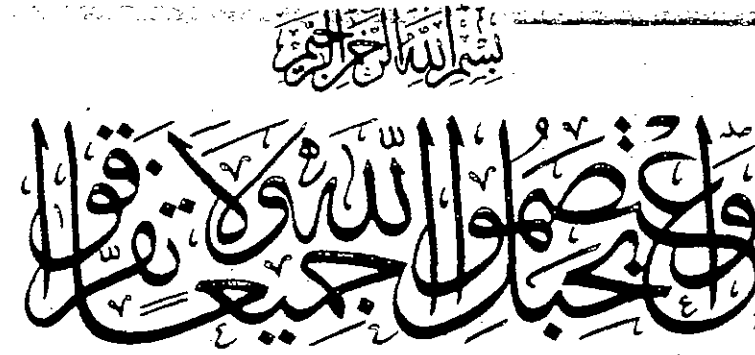 بِسْمِ اللَّهِ الرَّحْمَٰنِ الرَّحِيمِ
وَاعْتَصِمُوا بِحَبْلِ اللَّهِ جَمِيعًا وَلَا تَفَرَّقُوا